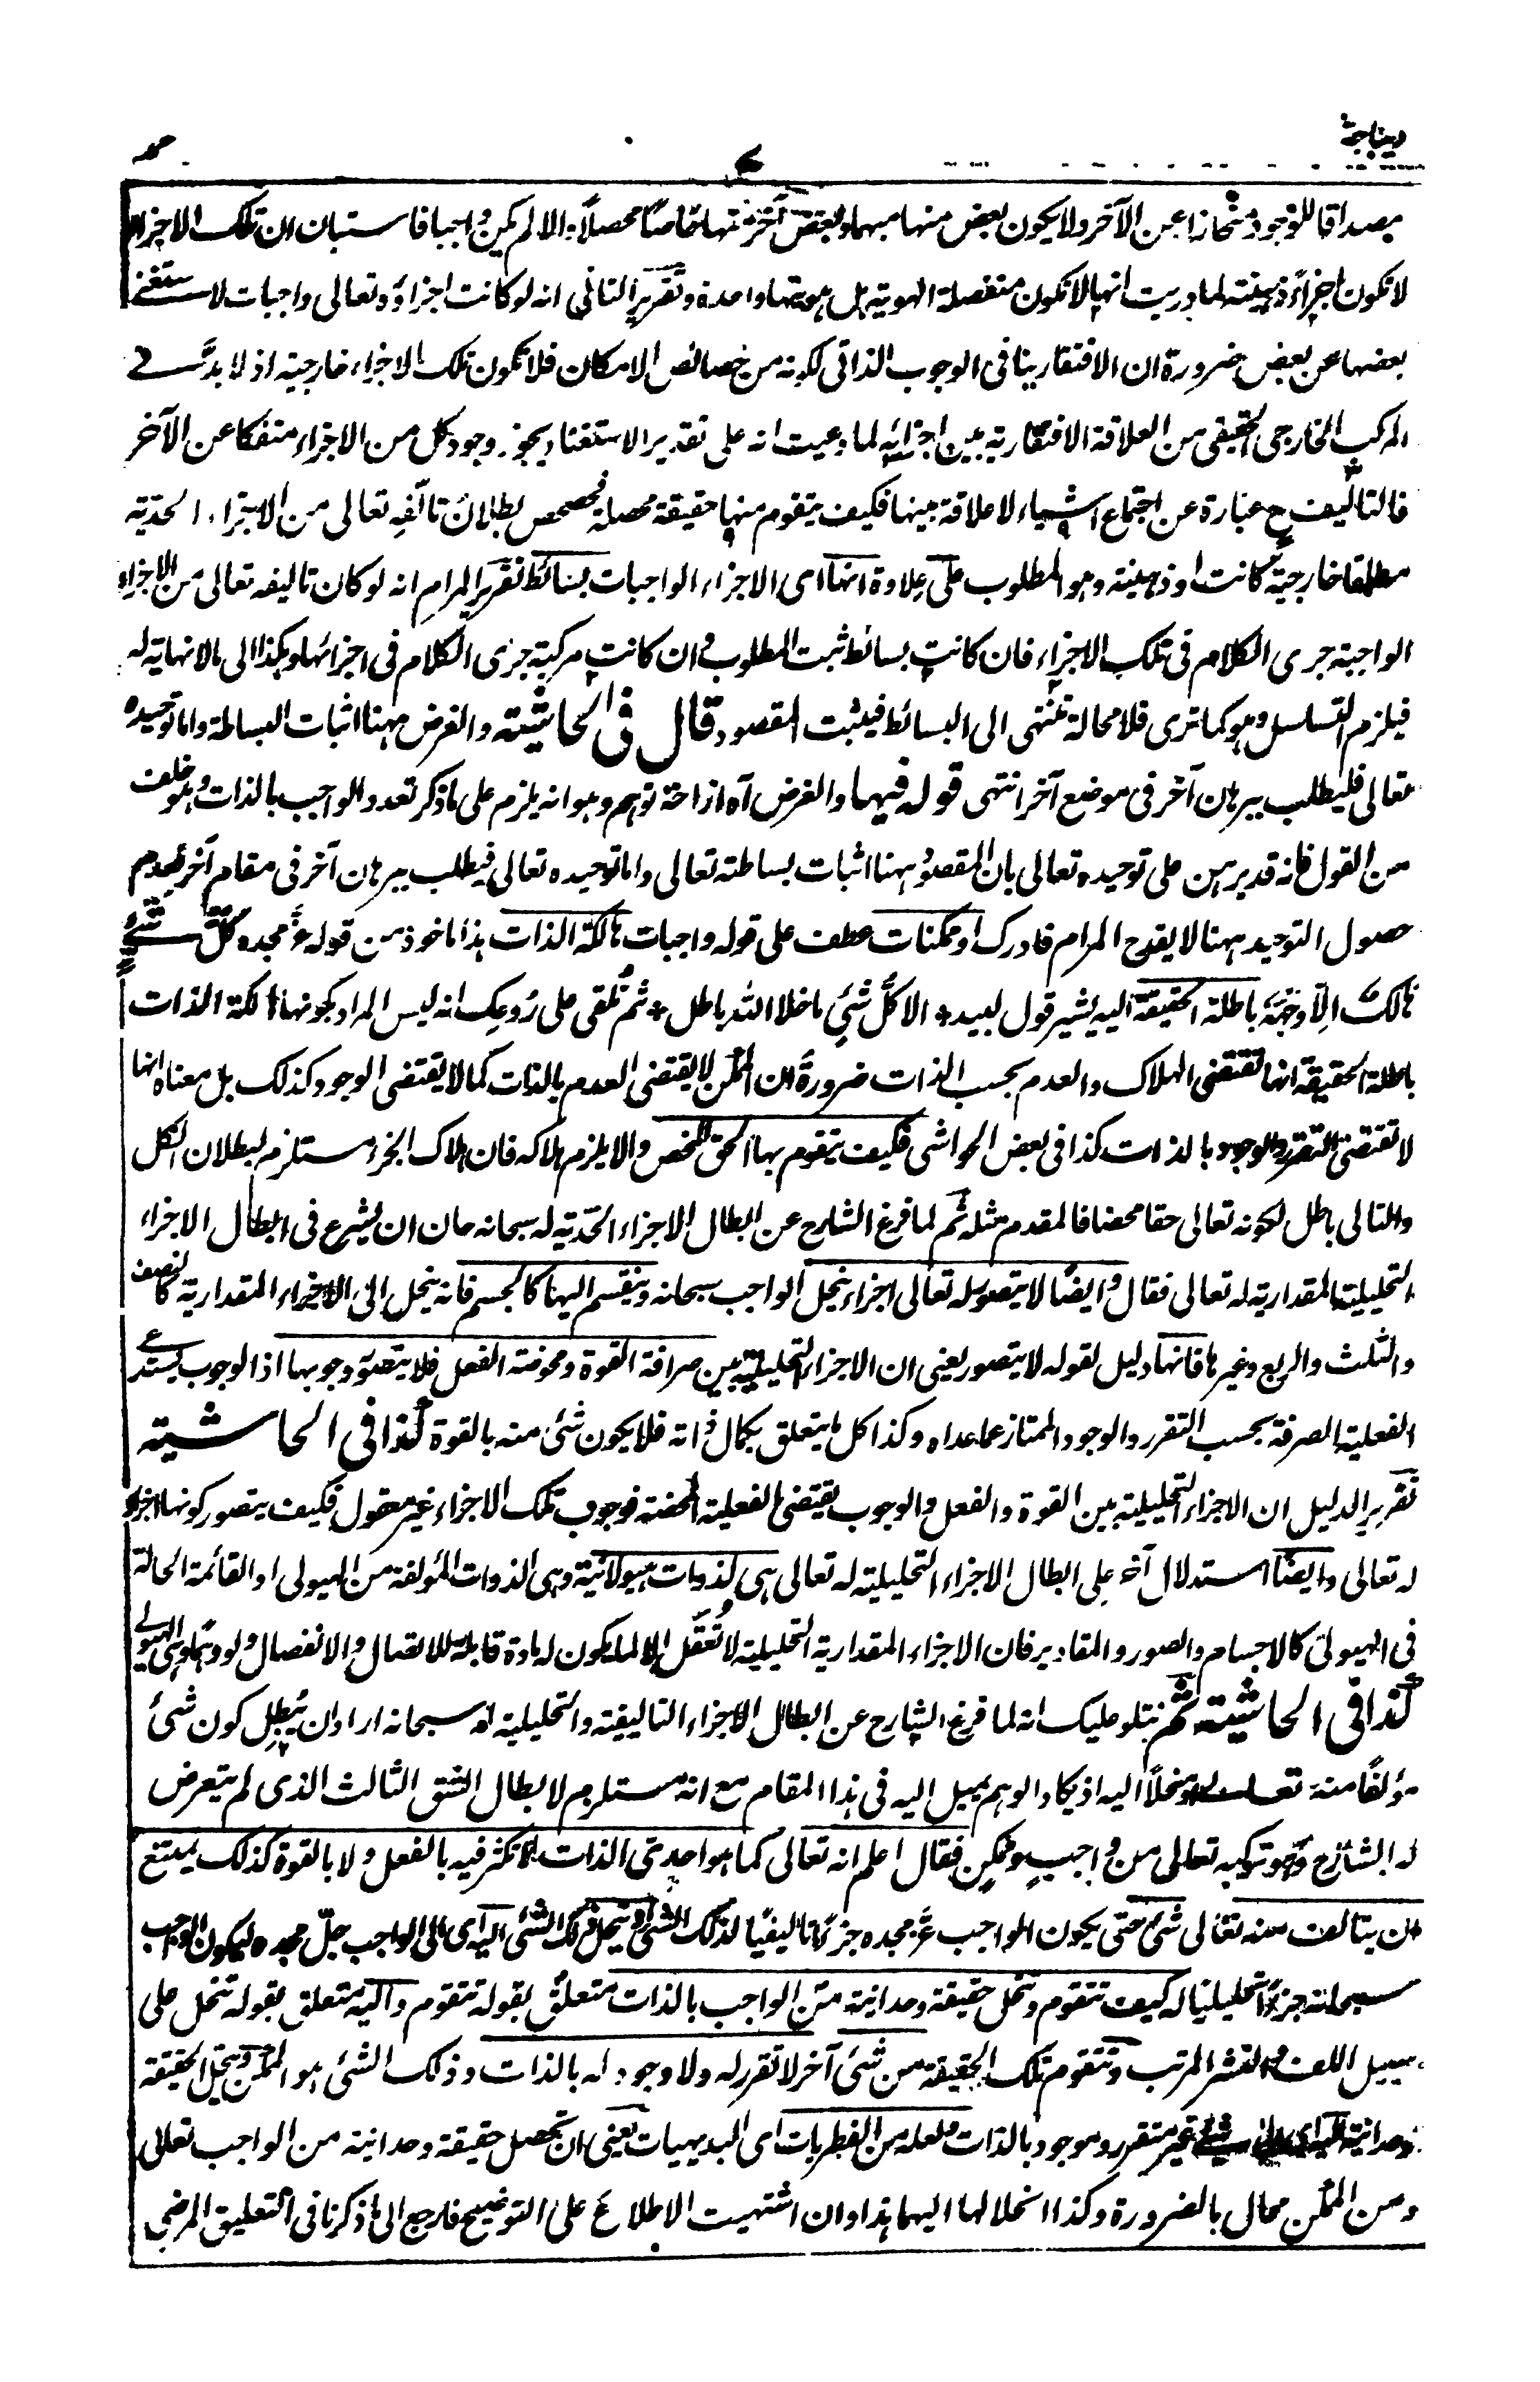 ديباجة
٧
حمد
مصداقا للوجود منحازا عن الآخر ولا يكون بعض منها مبهما وبعض آخر منها خاصا محصلا والا لم يكن واجبا فاستبان ان تلك الاجزاء
لا تكون اجزاءً ذهنية لما دريت انها لا تكون منفصلة الهوية بل هويتها واحدة وتقرير الثانى انه لو كانت اجزاؤه تعالى واجبات لاستغنى
بعضها عن بعض ضرورة ان الافتقار ينافى الوجوب الذاتى لكونه من خصائص الامكان فلا تكون تلك الاجزاء خارجية اذ لا بدّ فى
المركب الخارجى الحقيقى من العلاقة الافتقارية بين اجزائه لما دعيت انه على تقدير الاستغناء يجوز وجود كل من الاجزاء منفكا عن الآخر
فالتأليف ح عبارة عن اجتماع اشياء لا علاقة بينها فكيف يتقوم منها حقيقة محصلة فحصحص بطلان تالفه تعالى من الاجزاء الحدّية
مطلقا خارجية كانت او ذهنية وهو المطلوب على علاوة انها اى الاجزاء الواجبات بسائط تقرير المرام انه لو كان تاليفه تعالى من الاجزاء
الواجبة جرى الكلام فى تلك الاجزاء فان كانت بسائط ثبت المطلوب وان كانت مركبة جرى الكلام فى اجزائها وهكذا الى ما لا نهاية له
فيلزم التسلسل وهو كما ترى فلا محالة تنتهى الى البسائط فيثبت المقصود قال فى الحاشية والغرض ههنا اثبات البساطة واما توحيده
تعالى فليطلب ببرهان آخر فى موضع آخر انتهى قوله فيها والغرض آه ازاحة توهم وهو انه يلزم على ما ذكر تعدد الواجب بالذات وهو خلف
من القول فانه قد برهن على توحيده تعالى بان المقصود ههنا اثبات بساطته تعالى واما توحيده تعالى فيطلب ببرهان آخر فى مقام آخر فعدم
حصول التوحيد ههنا لا يقدح المرام فادرك او ممكنات عطف على قوله واجبات هالكة الذات هذا ماخوذ من قوله عزّ مجده كلّ شئ
هالك الّا وجهه باطلة الحقيقة اليه يشير قول لبيد * الا كلّ شئ ما خلا الله باطل * ثم تلقى على رُوعك انه ليس المراد بكونها هالكة الذات
باطلة الحقيقة انها تقتضى الهلاك والعدم بحسب الذات ضرورة ان الممكن لا يقتضى العدم بالذات كما لا يقتضى الوجود كذلك بل معناه انها
لا تقتضى التقرر والوجود بالذات كذا فى بعض الحواشى فكيف يتقوم بها الحق المحض والا يلزم هلاكه فان هلاك الجزء مستلزم لبطلان الكل
والتالى باطل لكونه تعالى حقا محضا فالمقدم مثله ثم لما فرغ الشارح عن ابطال الاجزاء الحدّية له سبحانه حان ان يشرع فى ابطال الاجزاء
التحليلية المقدارية له تعالى فقال وايضًا لا يتصور له تعالى اجزاء ينحل الواجب سبحانه وينقسم اليها كالجسم فانه ينحل الى الاجزاء المقدارية كالنصف
والثلث والربع وغيرها فانها دليل لقوله لا يتصور يعنى ان الاجزاء التحليلية بين صرافة القوة ومحوضة الفعل فلا يتصور وجوبها اذ الوجوب يستدعى
الفعلية الصرفة بحسب التقرر والوجود الممتاز عما عداه وكذا كل ما يتعلق بكمال ذاته فلا يكون شئ منه بالقوة كذا فى الحاشية
تقرير الدليل ان الاجزاء التحليلية بين القوة والفعل والوجوب يقتضى الفعلية المحضة فوجوب تلك الاجزاء غير معقول فكيف يتصور كونها اجزاء
له تعالى وايضًا استدلال آخر على ابطال الاجزاء التحليلية له تعالى هى لذوات هيولانية وهى الذوات المؤلفة من الهيولى او القائمة الحالة
فى الهيولى كالاجسام والصور والمقادير فان الاجزاء المقدارية التحليلية لا تُعقَل الا لما يكون له مادة قابلة للاتصال والانفصال ولو وهما وهى الهيولى
كذا فى الحاشية ثم نتلو عليك انه لما فرغ الشارح عن ابطال الاجزاء التاليفية والتحليلية له سبحانه اراد ان يُبطِل كون شئ
مؤلفًا منه تعالى او منحلًا اليه اذ يكاد الوهم يميل اليه فى هذا المقام مع انه مستلزم لابطال الشق الثالث الذى لم يتعرض
له الشارح وهو تركبه تعالى من واجب وممكن فقال اعلم انه تعالى كما هو احدى الذات لا تكثر فيه بالفعل ولا بالقوة كذلك يمتنع
ان يتالف منه تعالى شئ حتى يكون الواجب عزّ مجده جزءًا تاليفيًا لذلك الشئ او ينحل ذلك الشئ اليه اى الى الواجب جلّ مجده ليكون الواجب
سبحانه جزءًا تحليليًا له كيف تتقوم وتنحل حقيقة وحدانية من الواجب بالذات متعلق بقوله تتقوم واليه متعلق بقوله تنحل على
سبيل اللف والنشر المرتب وتتقوم تلك الحقيقة من شئ آخر لا تقرر له ولا وجود له بالذات وذلك الشئ هو الممكن وينحل الحقيقة
وحدانية اليه اى الى شئ غير متقرر وموجود بالذات ولعله من الفطريات اى البديهيات يعنى ان تحصل حقيقة وحدانية من الواجب تعالى
ومن الممكن محال بالضرورة وكذا انحلالها اليهما هذا وان اشتهيت الاطلاع على التوضيح فارجع الى ما ذكرنا فى التعليق المرضى